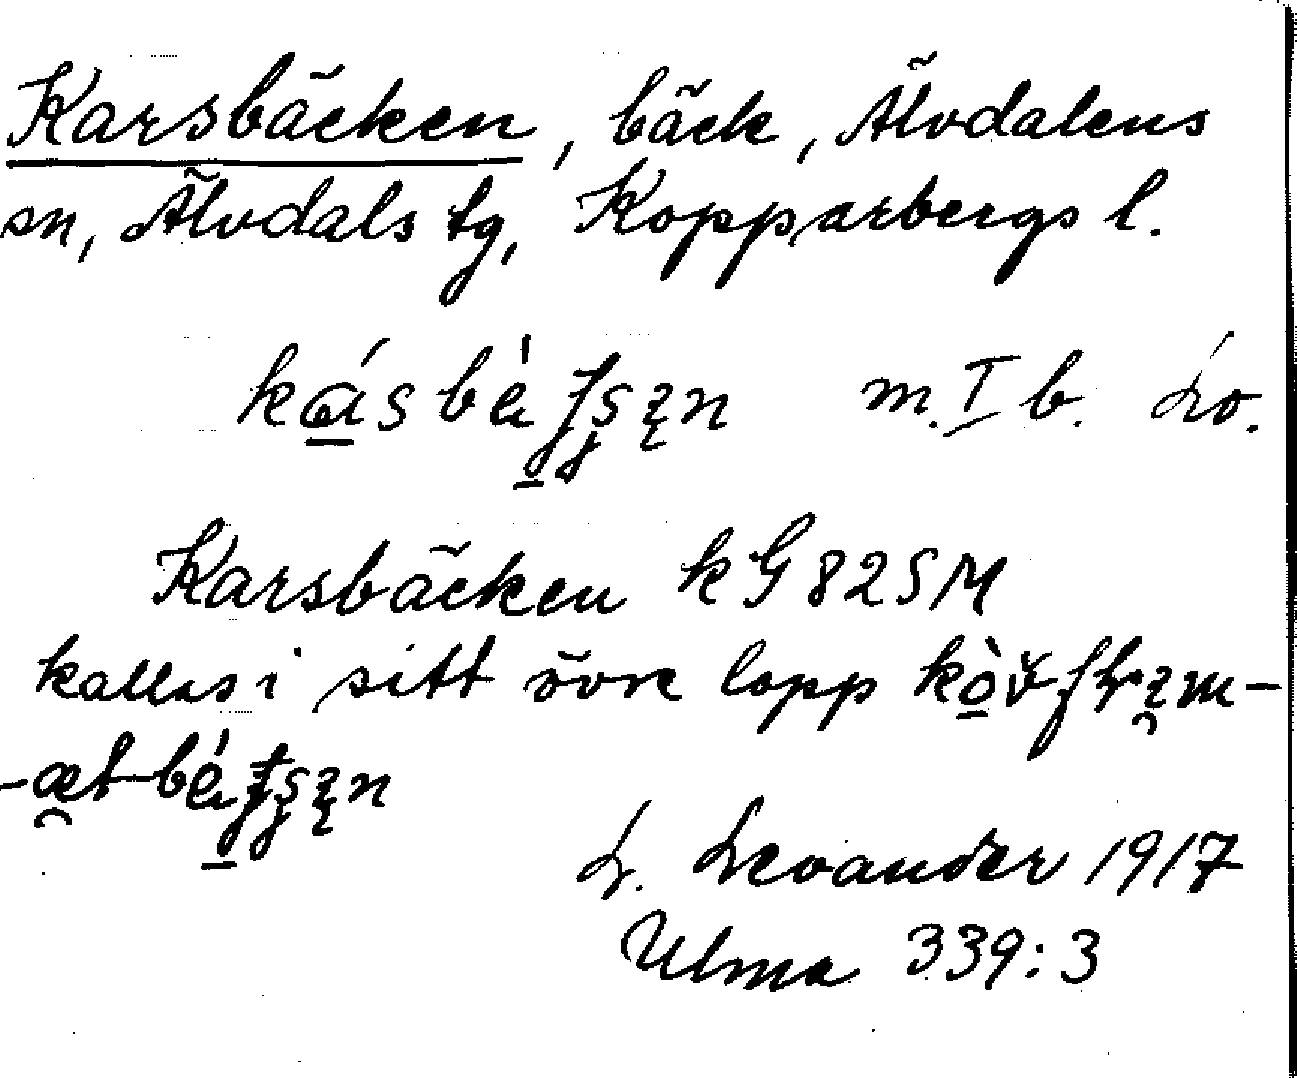 Karsbäcken, bäck, Älvdalens
sn, Älvdals tg, Kopparbergs l.
m. I b. Lo.
Karsbäcken kG 82 SM
kallas i sitt övre lopp
L. Levander 1917
Ulma 339:3